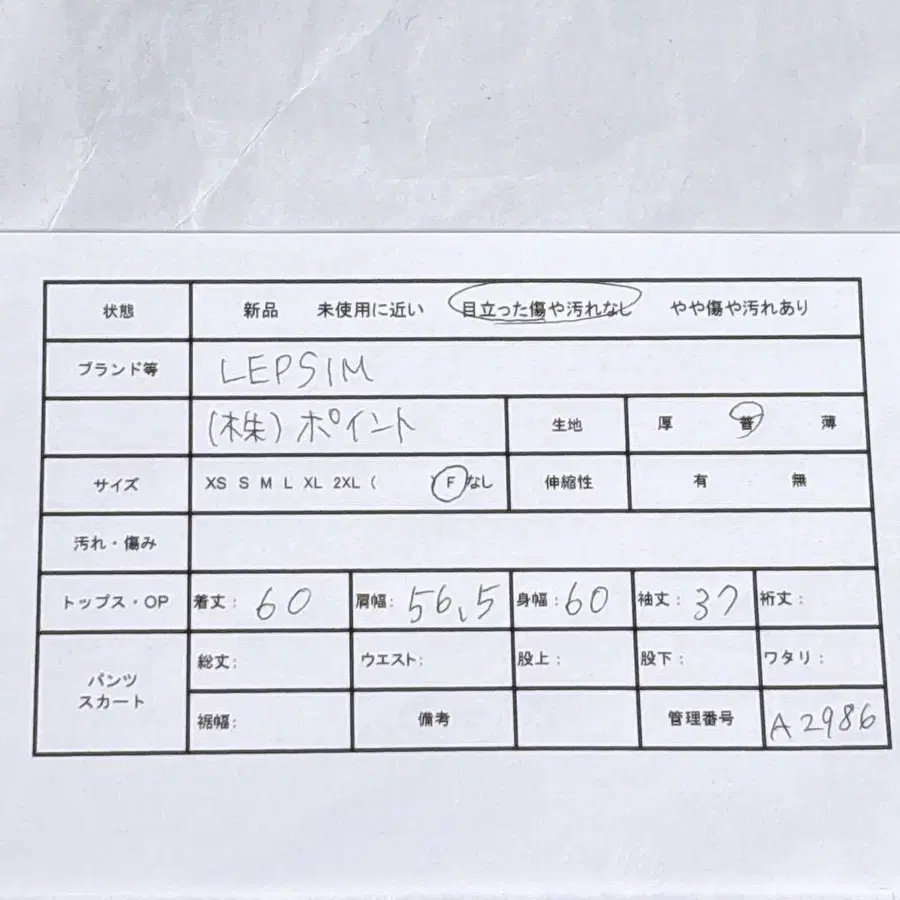 状態 新品 未使用に近い 目立った傷や汚れなし やや傷や汚れあり
ブランド等 LEPSIM
(株)ポイント 生地 厚 普 薄
サイズ XS S M L XL 2XL ( ) F なし 伸縮性 有 無
汚れ・傷み
トップス・OP 着丈: 60 肩幅: 56.5 身幅: 60 袖丈: 37 裄丈:
パンツ
スカート
総丈: ウエスト: 股上: 股下: ワタリ:
裾幅: 備考 管理番号 A2986